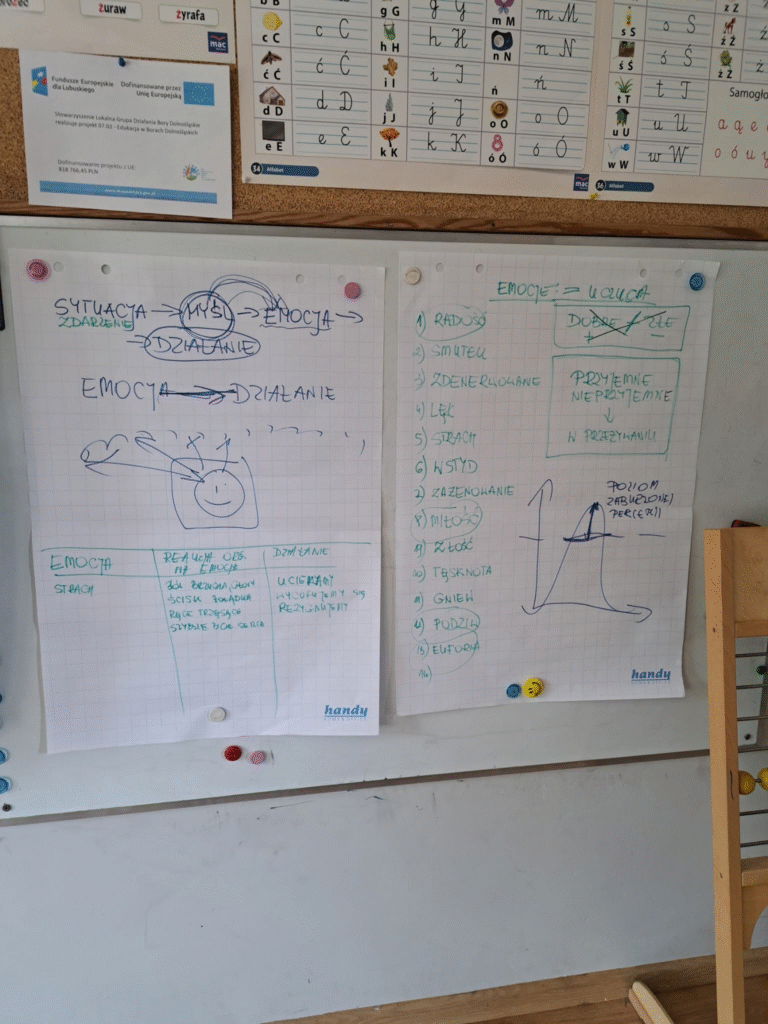 żuraw
żyrafa
mac
Fundusze Europejskie
dla Lubuskiego
Dofinansowane przez
Unię Europejską
Stowarzyszenie Lokalna Grupa Działania Bory Dolnośląskie
Dofinansowanie projektu z UE:
818 766,45 PLN
c C
c C
ć Ć
ć Ć
d D
d D
e E
e E
g G
g G
h H
h H
i I
i I
j J
j J
k K
k K
m M
m M
n N
n N
ń
ń
o O
o O
ó Ó
ó Ó
34 Alfabet
mac
s S
s S
ś Ś
ś Ś
t T
t T
u U
u U
w W
w W
36 Alfabet
z Z
ź Ź
ż Ż
Samogło
a ą e
o ó u y
SYTUACJA → MYŚL → EMOCJA →
ZDARZENIE
→ DZIAŁANIE
EMOCJA → DZIAŁANIE
EMOCJA
REAKCJA ORG.
NA EMOCJĘ
DZIAŁANIE
STRACH
BÓL BRZUCHA, GŁOWY
ŚCISK ŻOŁĄDKA
RĘCE TRZĘSĄCE
SZYBKIE BICIE SERCA
UCIEKAMY
WYCOFUJEMY SIĘ
REZYGNUJEMY
handy
EMOCJE = UCZUCIA
1) RADOŚĆ
2) SMUTEK
3) ZDENERWOWANIE
4) LĘK
5) STRACH
6) WSTYD
7) ZAŻENOWANIE
8) MIŁOŚĆ
9) ZŁOŚĆ
10) TĘSKNOTA
11) GNIEW
12) PODZIW
13) EUFORIA
14)
DOBRE ZŁE
+ –
PRZYJEMNE
NIEPRZYJEMNE
↓
W PRZEŻYWANIU
POZIOM
ZABURZONEJ
PERCEPCJI
handy